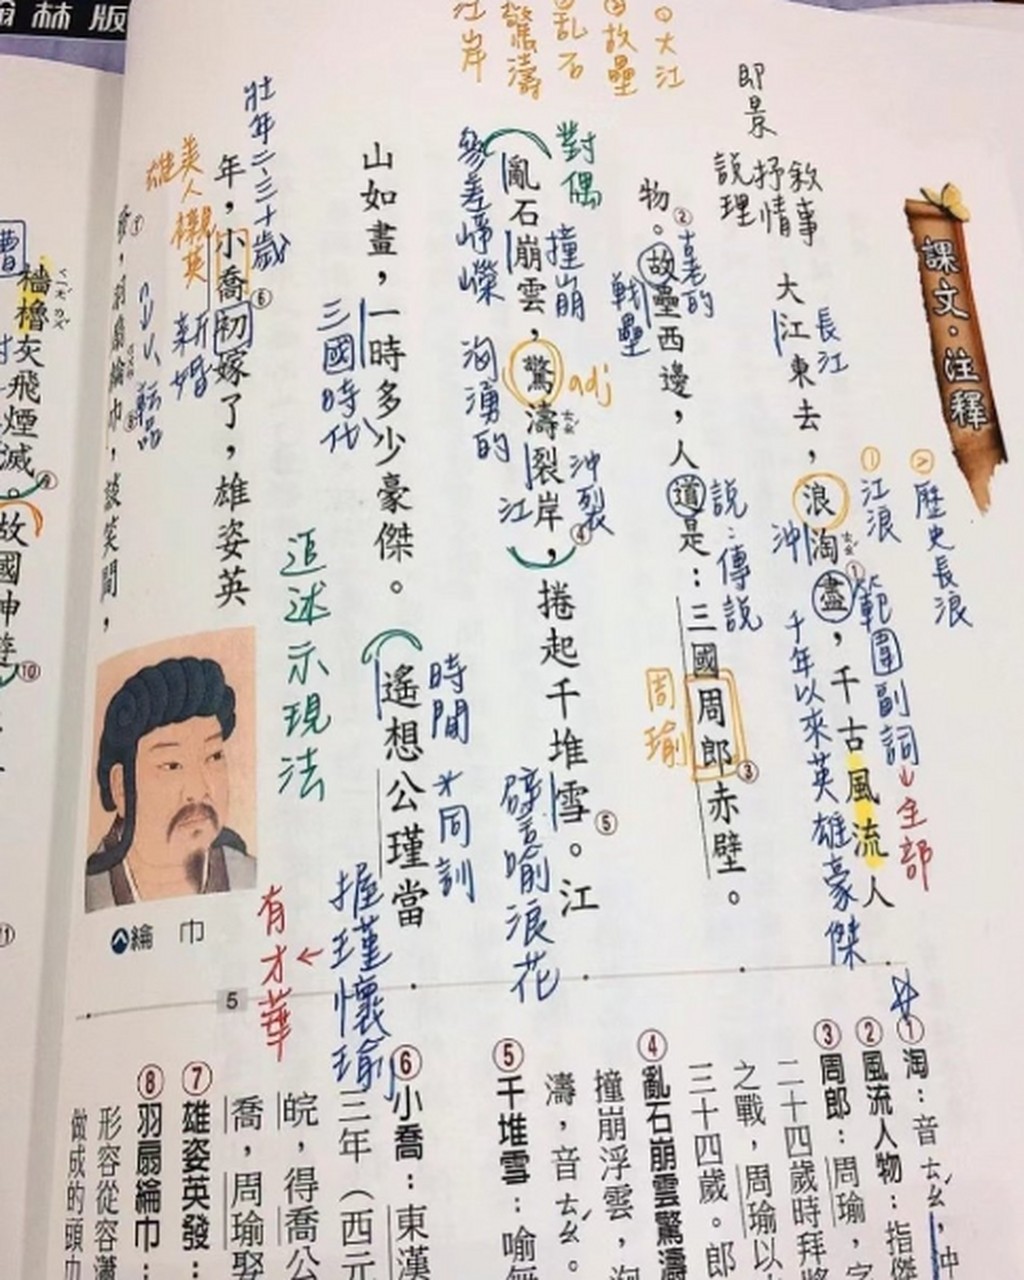 翰林版
課文·注釋
①大江
②故壘
③亂石
驚濤
江岸
即景
敘事
抒情
說理
大江東去，浪淘盡①，千古風流人
長江
①江浪
②歷史長浪
沖
範圍副詞
↓全部
千年以來英雄豪傑
物②。故壘西邊，人道是：三國周郎③赤壁。
舊的
戰壘
說：傳說
周瑜
亂石崩雲，驚濤裂岸④，捲起千堆雪⑤。江
對偶
參差崢嶸
撞崩
洶湧的
adj
沖裂
江
譬喻浪花
山如畫，一時多少豪傑。遙想公瑾當
三國時代
時間
*同訓
握瑾懷瑜
→有才華
追述示現法
年，小喬⑥初嫁了，雄姿英
壯年二、三十歲
美人襯英雄
新婚
發⑦，羽扇綸巾⑧，談笑間，
檣櫓灰飛煙滅⑨。
故國神
⑩
⑪
綸巾
5
①淘：音ㄊㄠˊ，沖
②風流人物：指傑
③周郎：周瑜，字
二十四歲時拜將
之戰，周瑜以
三十四歲。郎
④亂石崩雲驚濤
撞崩浮雲，洶
濤，音ㄊㄠˊ。
⑤千堆雪：喻無
⑥小喬：東漢
三年（西元
皖，得喬公
喬，周瑜娶
⑦雄姿英發：
⑧羽扇綸巾：
形容從容瀟
做成的頭巾